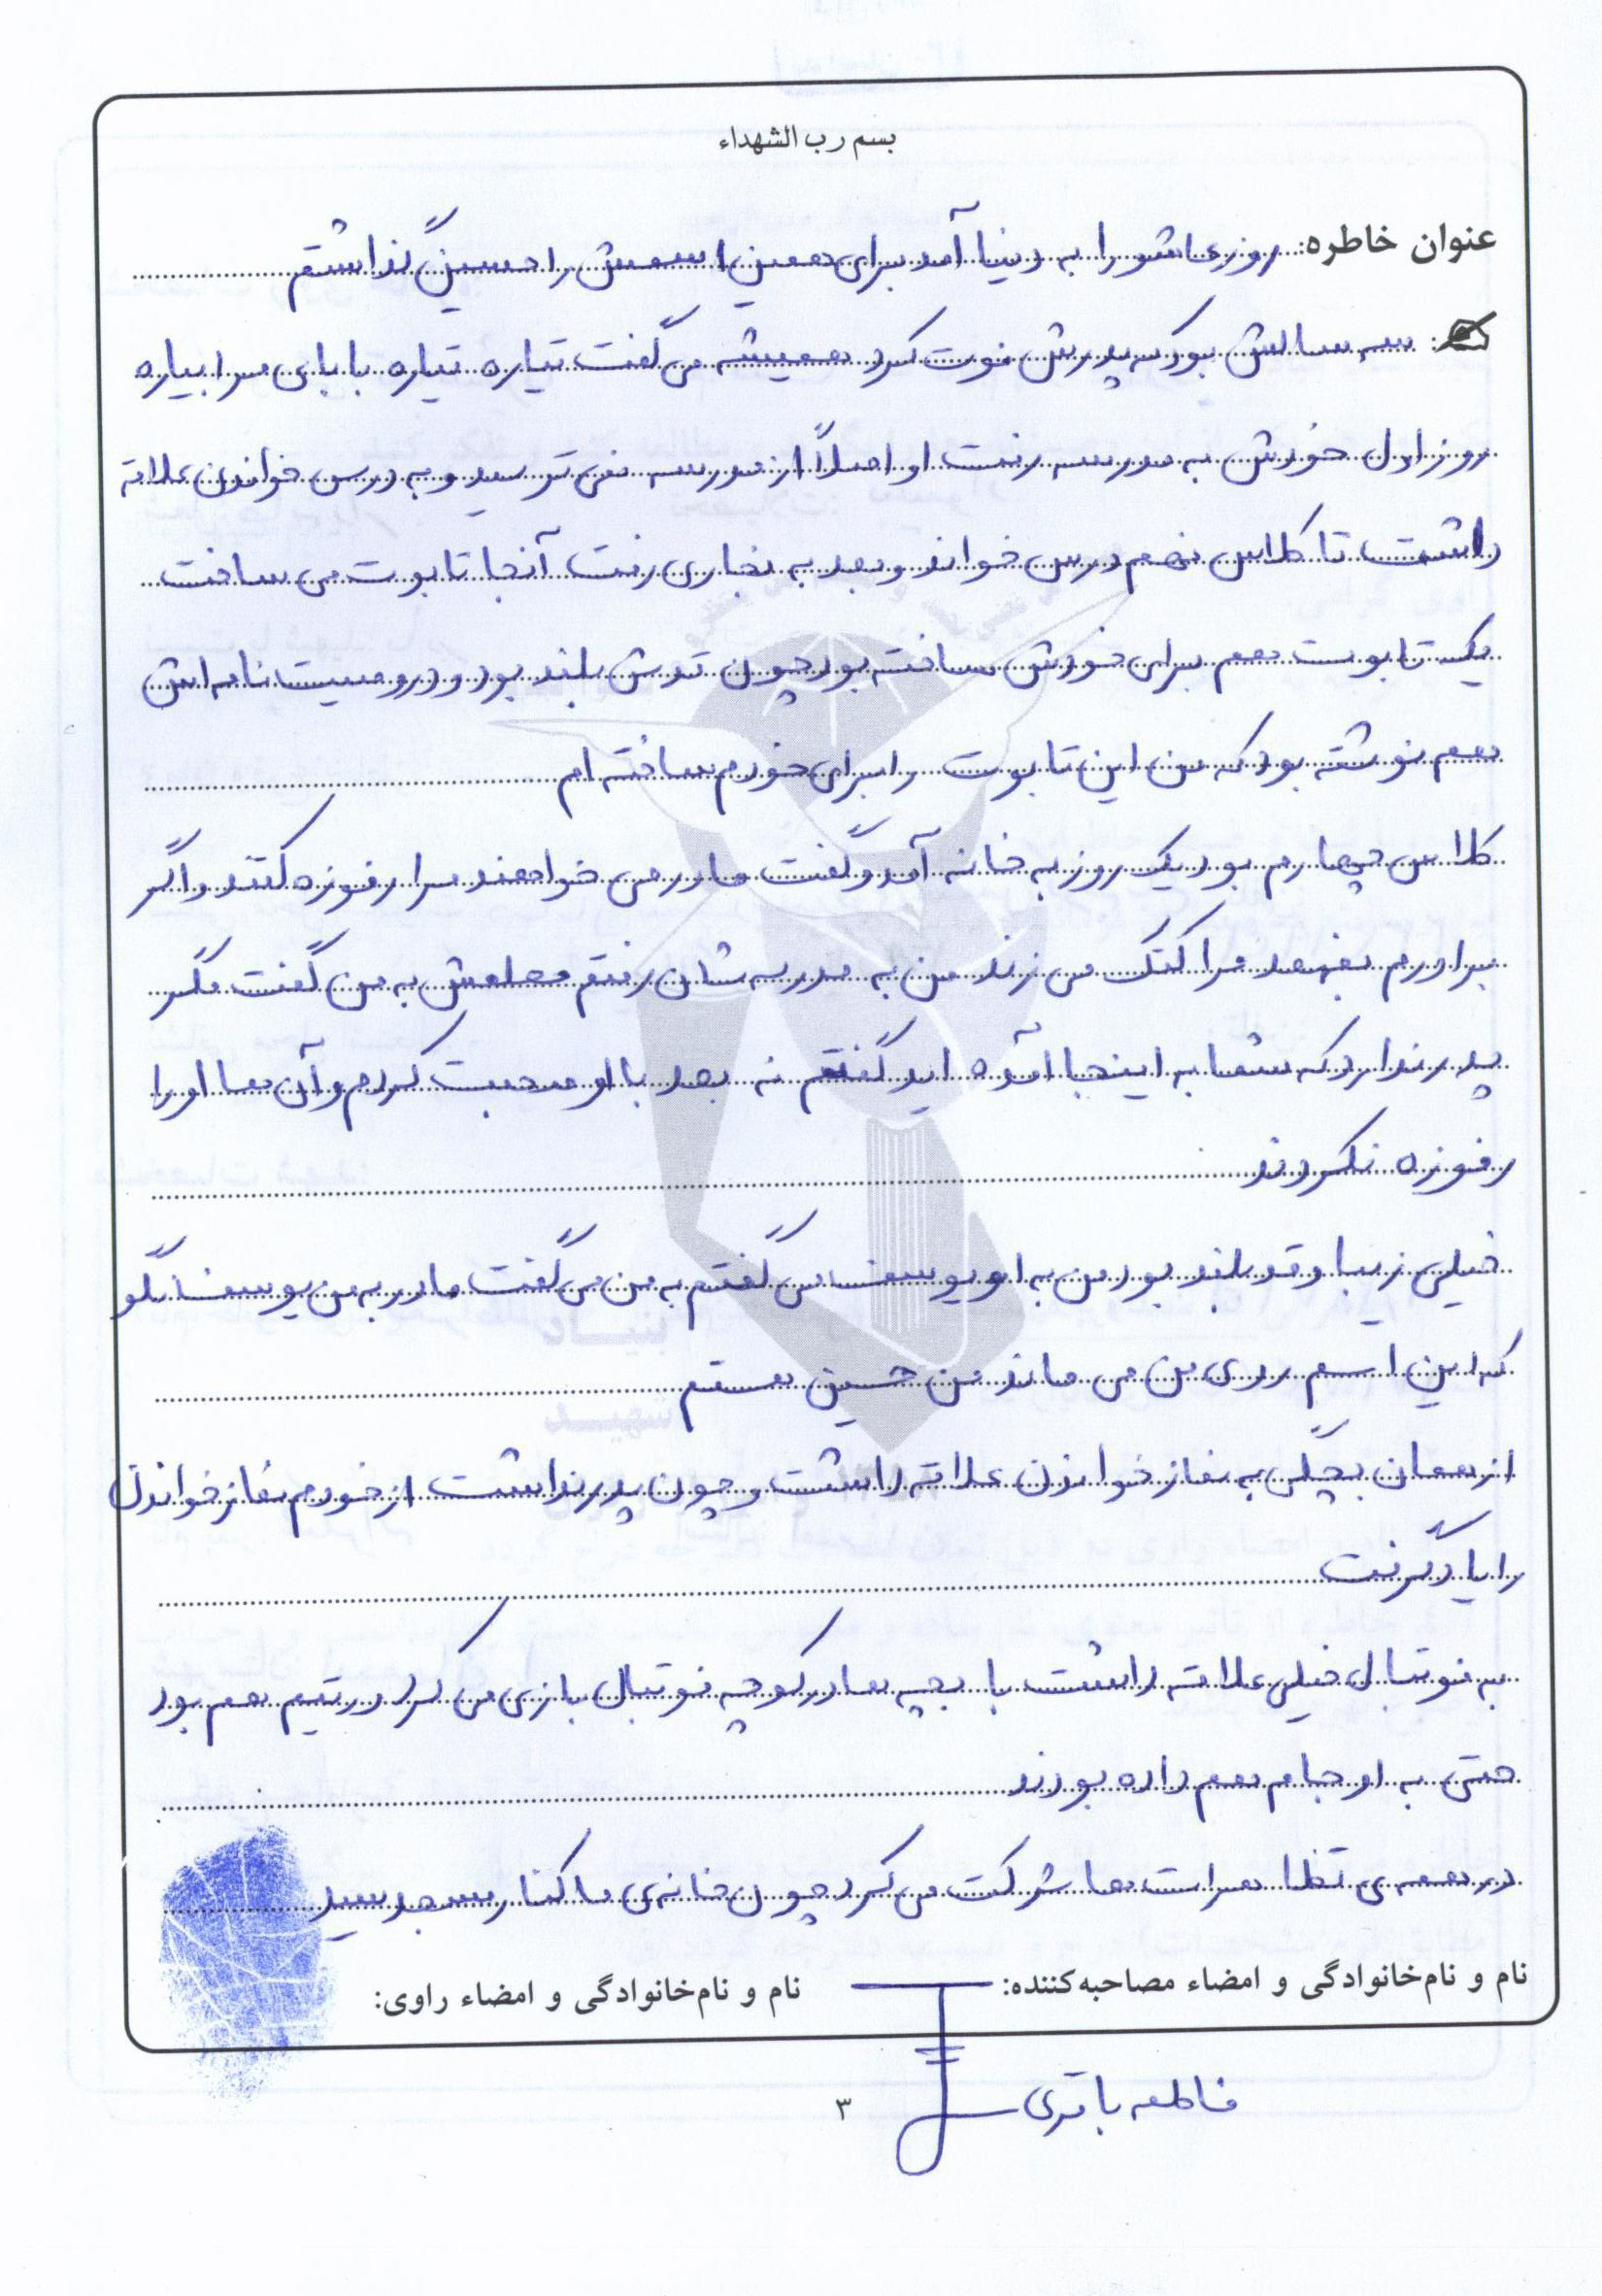 بسم رب الشهداء
عنوان خاطره: روز عاشورا به دنیا آمد برای همین اسمش را حسین گذاشتم
سه سالش بود که پدرش فوت کرد همیشه می گفت تیاره تیاره بابای مرا بیاره
روز اول خودش به مدرسه رفت او اصلاً از مدرسه نمی ترسید و به درس خواندن علاقه
داشت تا کلاس نهم درس خواند و بعد به نجاری رفت آنجا تابوت می ساخت
یک تابوت هم برای خودش ساخته بود چون قدش بلند بود و در وصیت نامه اش
هم نوشته بود که من این تابوت را برای خودم ساخته ام
کلاس چهارم بود یک روز به خانه آمد و گفت مادر می خواهند مرا رفوزه کنند و اگر
برادرم بفهمد مرا کتک می زند من به مدرسه شان رفتم معلمش به من گفت مگر
پدر ندارد که شما به اینجا آمده اید گفتم نه بعد با او صحبت کردم و آن ها او را
رفوزه نکردند
خیلی زیبا و قد بلند بود من به او یوسف می گفتم به من می گفت مادر به من یوسف نگو
که این اسم روی من می ماند من حسین هستم
از همان بچگی به نماز خواندن علاقه داشت و چون پدر نداشت از خودم نماز خواندن
را یاد گرفت
به فوتبال خیلی علاقه داشت با بچه ها در کوچه فوتبال بازی می کرد در تیم هم بود
حتی به او جام هم داده بودند
در همه ی تظاهرات ها شرکت می کرد چون خانه ی ما کنار مسجد سید
نام و نام‌خانوادگی و امضاء مصاحبه‌کننده: نام و نام‌خانوادگی و امضاء راوی:
فاطمه باقری
۳